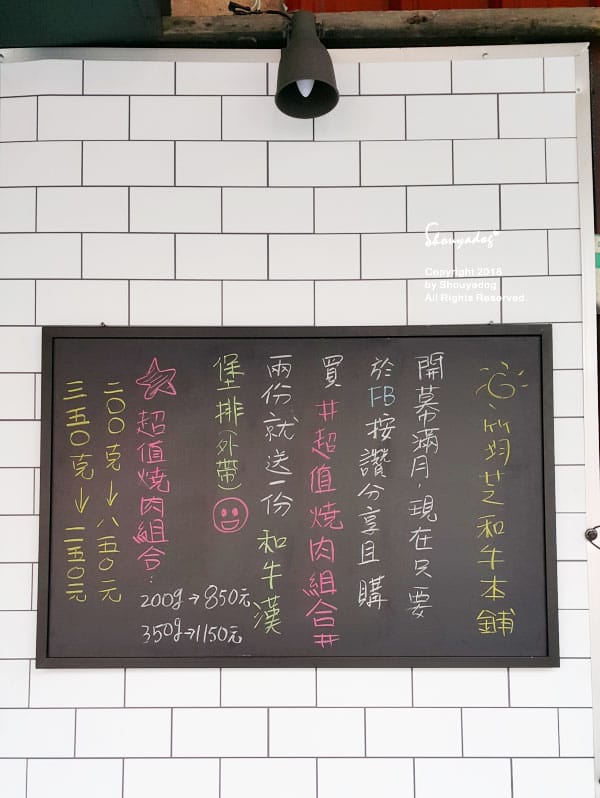 筠芝和牛本鋪
開幕滿月,現在只要
於FB按讚分享且購
買 #超值燒肉組合#
兩份就送一份 和牛漢
堡排(外帶)
超值燒肉組合:
二〇〇克→八五〇元
三五〇克→一一五〇元
200g→850元
350g→1150元
Shouyadog
Copyright 2018
by Shouyadog
All Rights Reserved.